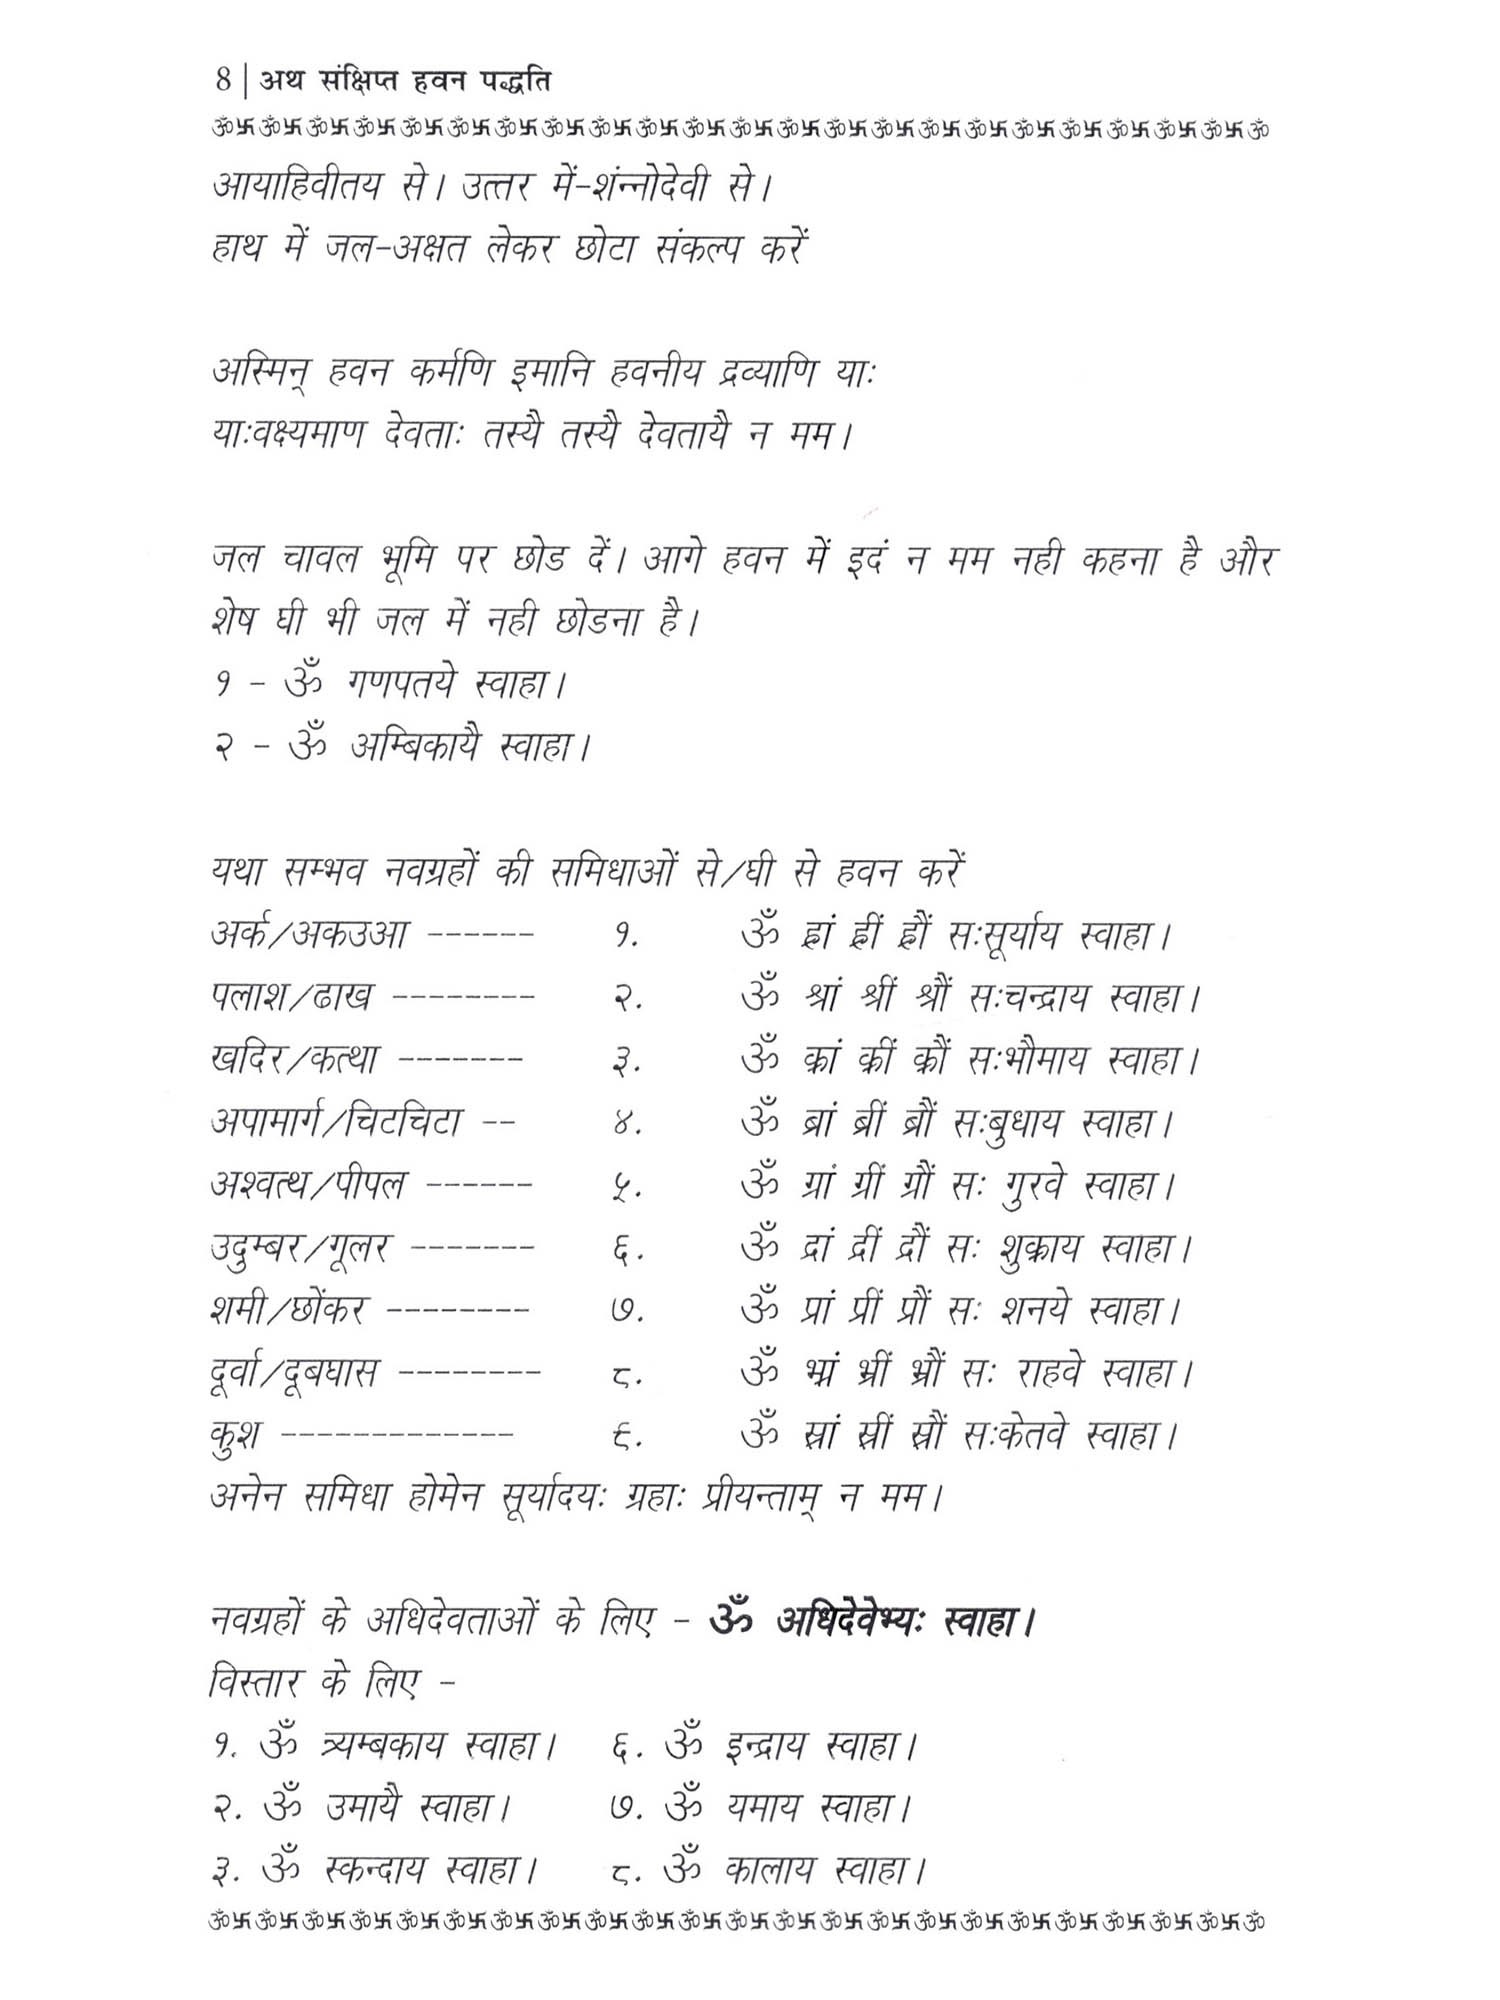 8 | अथ संक्षिप्त हवन पद्धति
ॐ卐ॐ卐ॐ卐ॐ卐ॐ卐ॐ卐ॐ卐ॐ卐ॐ卐ॐ卐ॐ卐ॐ卐ॐ卐ॐ卐ॐ卐ॐ卐ॐ卐ॐ卐ॐ卐ॐ卐ॐ卐ॐ卐ॐ
आयाहिवीतय से। उत्तर में-शंन्नोदेवी से।
हाथ में जल-अक्षत लेकर छोटा संकल्प करें
अस्मिन् हवन कर्मणि इमानि हवनीय द्रव्याणि याः
याःवक्ष्यमाण देवताः तस्यै तस्यै देवतायै न मम।
जल चावल भूमि पर छोड दें। आगे हवन में इदं न मम नही कहना है और
शेष घी भी जल में नही छोडना है।
१ - ॐ गणपतये स्वाहा।
२ - ॐ अम्बिकायै स्वाहा।
यथा सम्भव नवग्रहों की समिधाओं से/घी से हवन करें
अर्क/अकउआ ------ १. ॐ ह्रां ह्रीं ह्रौं सःसूर्याय स्वाहा।
पलाश/ढाख -------- २. ॐ श्रां श्रीं श्रौं सःचन्द्राय स्वाहा।
खदिर/कत्था ------- ३. ॐ क्रां क्रीं क्रौं सःभौमाय स्वाहा।
अपामार्ग/चिटचिटा -- ४. ॐ ब्रां ब्रीं ब्रौं सःबुधाय स्वाहा।
अश्वत्थ/पीपल ------ ५. ॐ ग्रां ग्रीं ग्रौं सः गुरवे स्वाहा।
उदुम्बर/गूलर ------- ६. ॐ द्रां द्रीं द्रौं सः शुक्राय स्वाहा।
शमी/छोंकर -------- ७. ॐ प्रां प्रीं प्रौं सः शनये स्वाहा।
दूर्वा/दूबघास -------- ८. ॐ भ्रां भ्रीं भ्रौं सः राहवे स्वाहा।
कुश ------------- ९. ॐ स्रां स्रीं स्रौं सःकेतवे स्वाहा।
अनेन समिधा होमेन सूर्यादयः ग्रहाः प्रीयन्ताम् न मम।
नवग्रहों के अधिदेवताओं के लिए - ॐ अधिदेवेभ्यः स्वाहा।
विस्तार के लिए -
१. ॐ त्र्यम्बकाय स्वाहा। ६. ॐ इन्द्राय स्वाहा।
२. ॐ उमायै स्वाहा। ७. ॐ यमाय स्वाहा।
३. ॐ स्कन्दाय स्वाहा। ८. ॐ कालाय स्वाहा।
ॐ卐ॐ卐ॐ卐ॐ卐ॐ卐ॐ卐ॐ卐ॐ卐ॐ卐ॐ卐ॐ卐ॐ卐ॐ卐ॐ卐ॐ卐ॐ卐ॐ卐ॐ卐ॐ卐ॐ卐ॐ卐ॐ卐ॐ